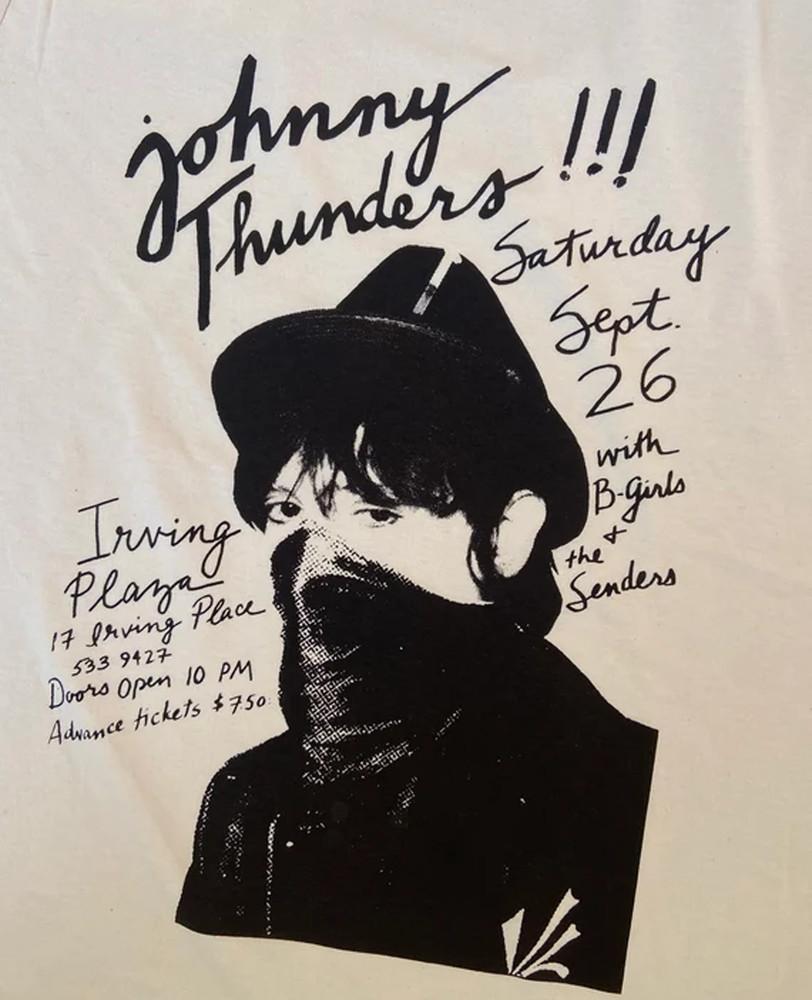 johnny
Thunders !!!
Saturday
Sept.
26
with
B-Girls
+
the
Senders
Irving
Plaza
17 Irving Place
533 9427
Doors Open 10 PM
Advance tickets $7.50